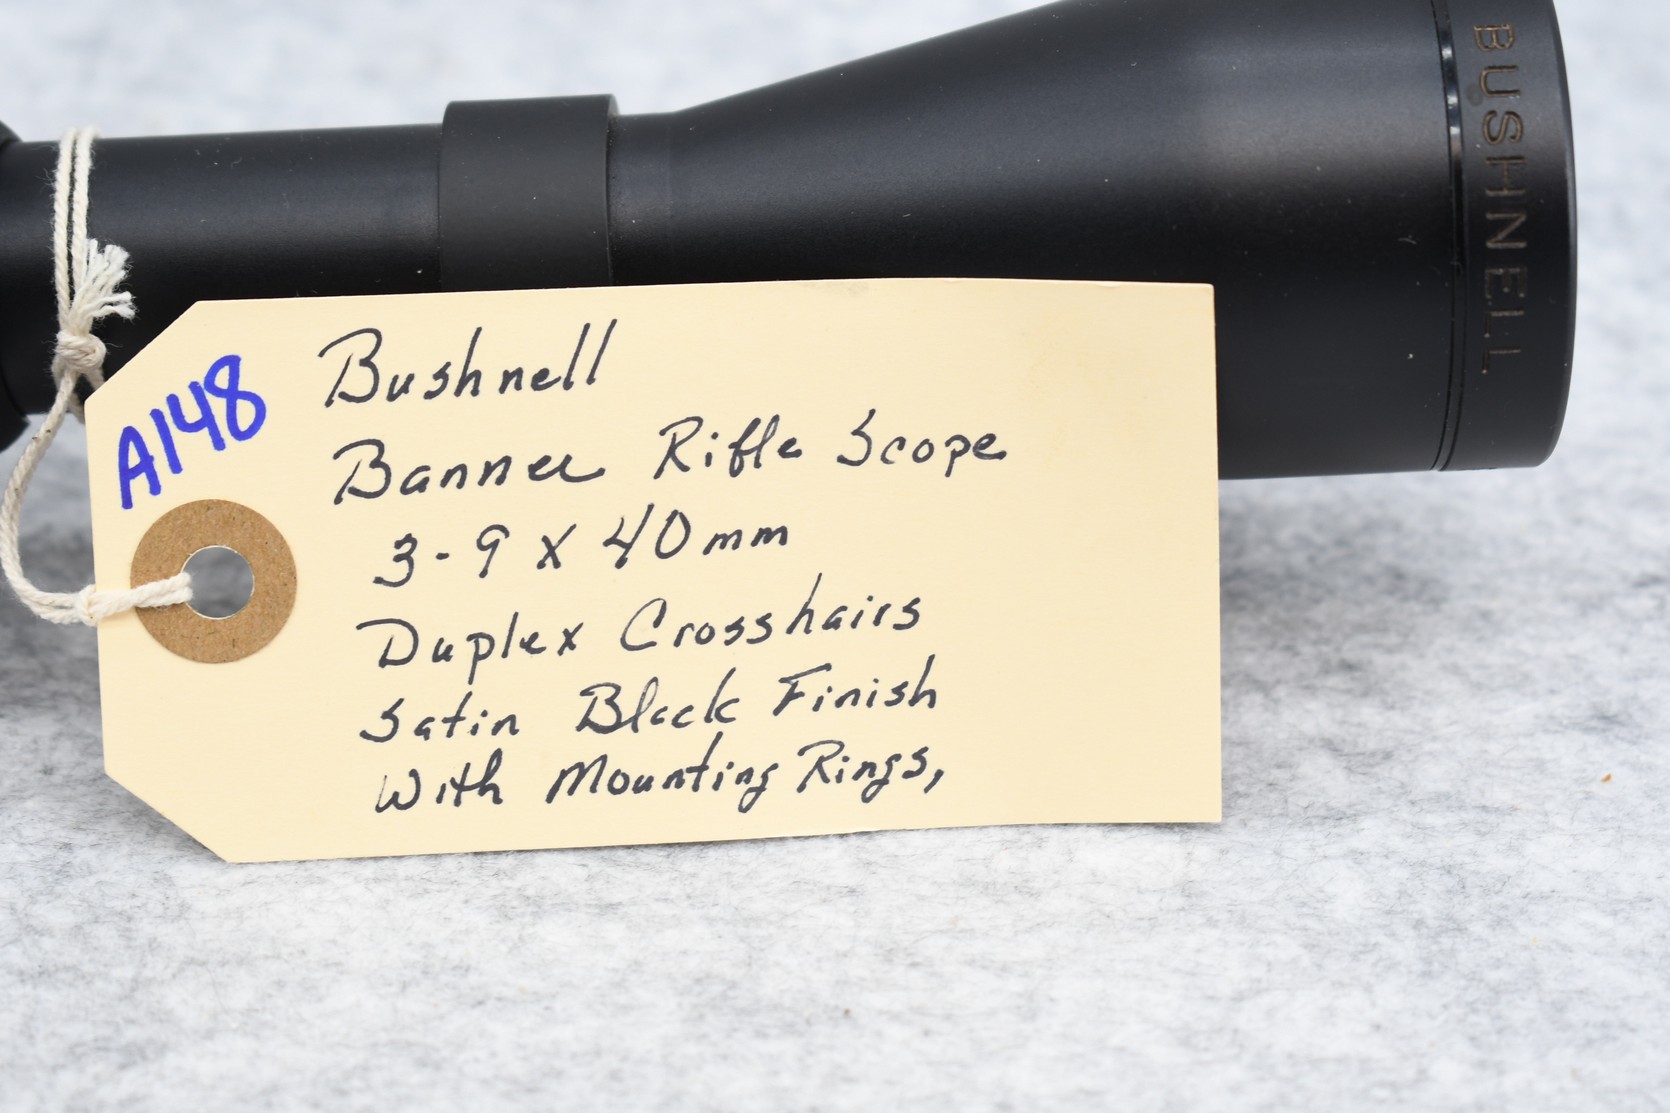 BUSHNELL
A148
Bushnell
Banner Rifle Scope
3-9 x 40mm
Duplex Crosshairs
Satin Black Finish
With Mounting Rings,